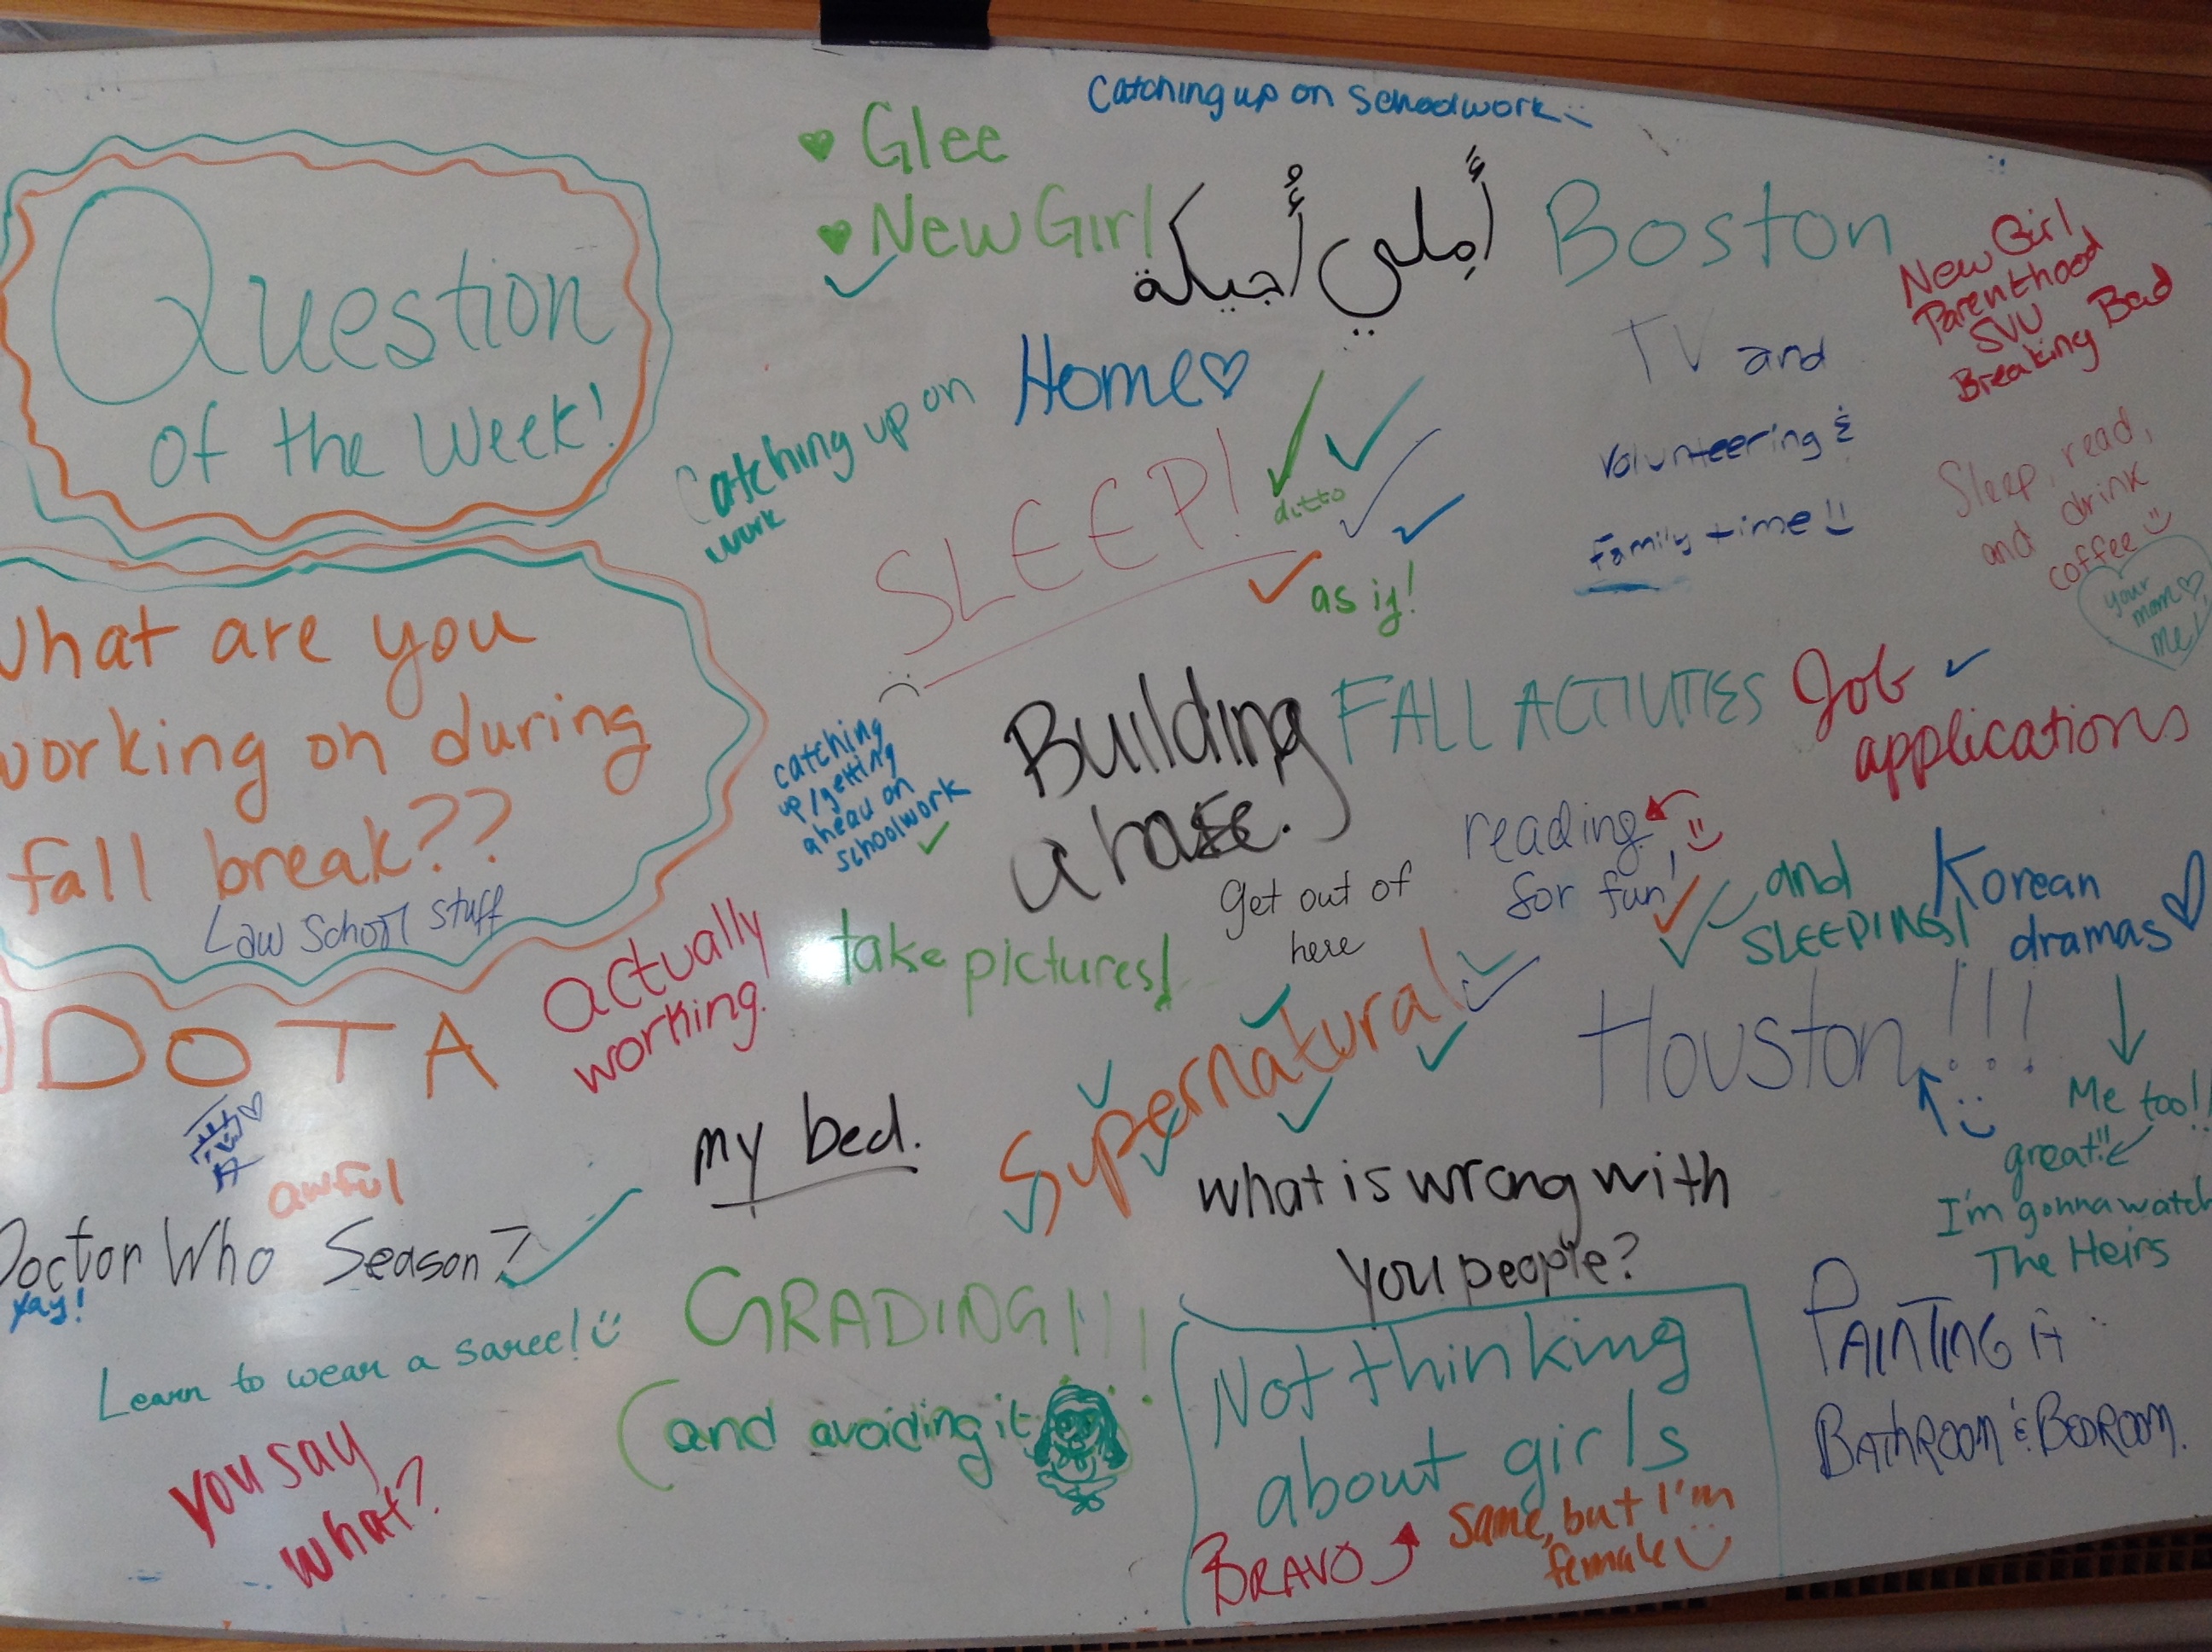 Question
of the Week!
What are you
working on during
fall break??
Law School stuff
♥ Glee
♥ New Girl
Catching up on schoolwork
Boston
New Girl
Parenthood
SVU
Breaking Bad
Catching up on
work
Home♡
SLEEP!
ditto
as if!
TV and
Volunteering &
Family time
Sleep, read,
and drink
coffee
your
mom♡
me!
catching
up/getting
ahead on
schoolwork
Building
a
FALL ACTIVITIES
Job
applications
reading
for fun!
and
SLEEPING!
Korean
dramas♡
Me too!!
great!!
I'm gonna watch
The Heirs
Get out of
here
take pictures!
actually
working.
DOTA
愛♡
awful
my bed.
Supernatural
Houston!!!
what is wrong with
you people?
Doctor Who Season 7
Yay!
Learn to wear a saree!
you say
what?
GRADING!!!
(and avoiding it
Not thinking
about girls
BRAVO
Same, but I'm
female
PAINTING it
BATHROOM & BEDROOM.